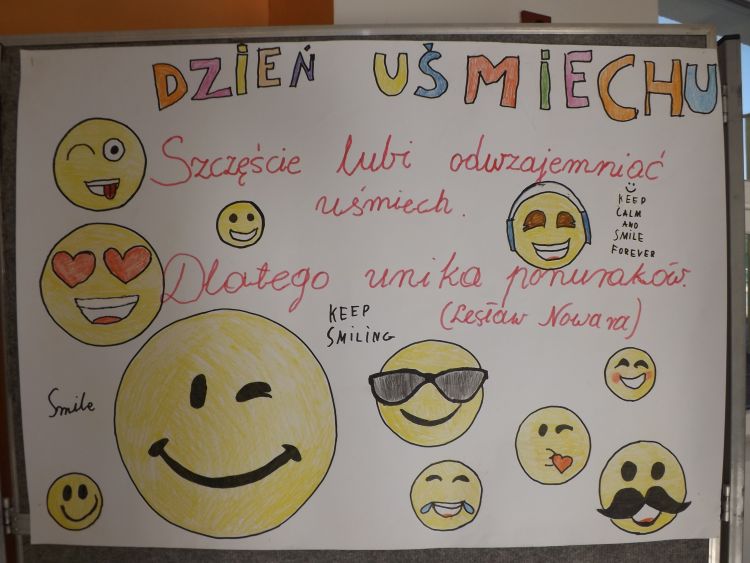 DZIEŃ UŚMIECHU
Szczęście lubi odwzajemniać
uśmiech.
KEEP
CALM
AND
SMILE
FOREVER
Dlatego unika ponuraków.
(Lesław Nowara)
KEEP
SMILING
Smile